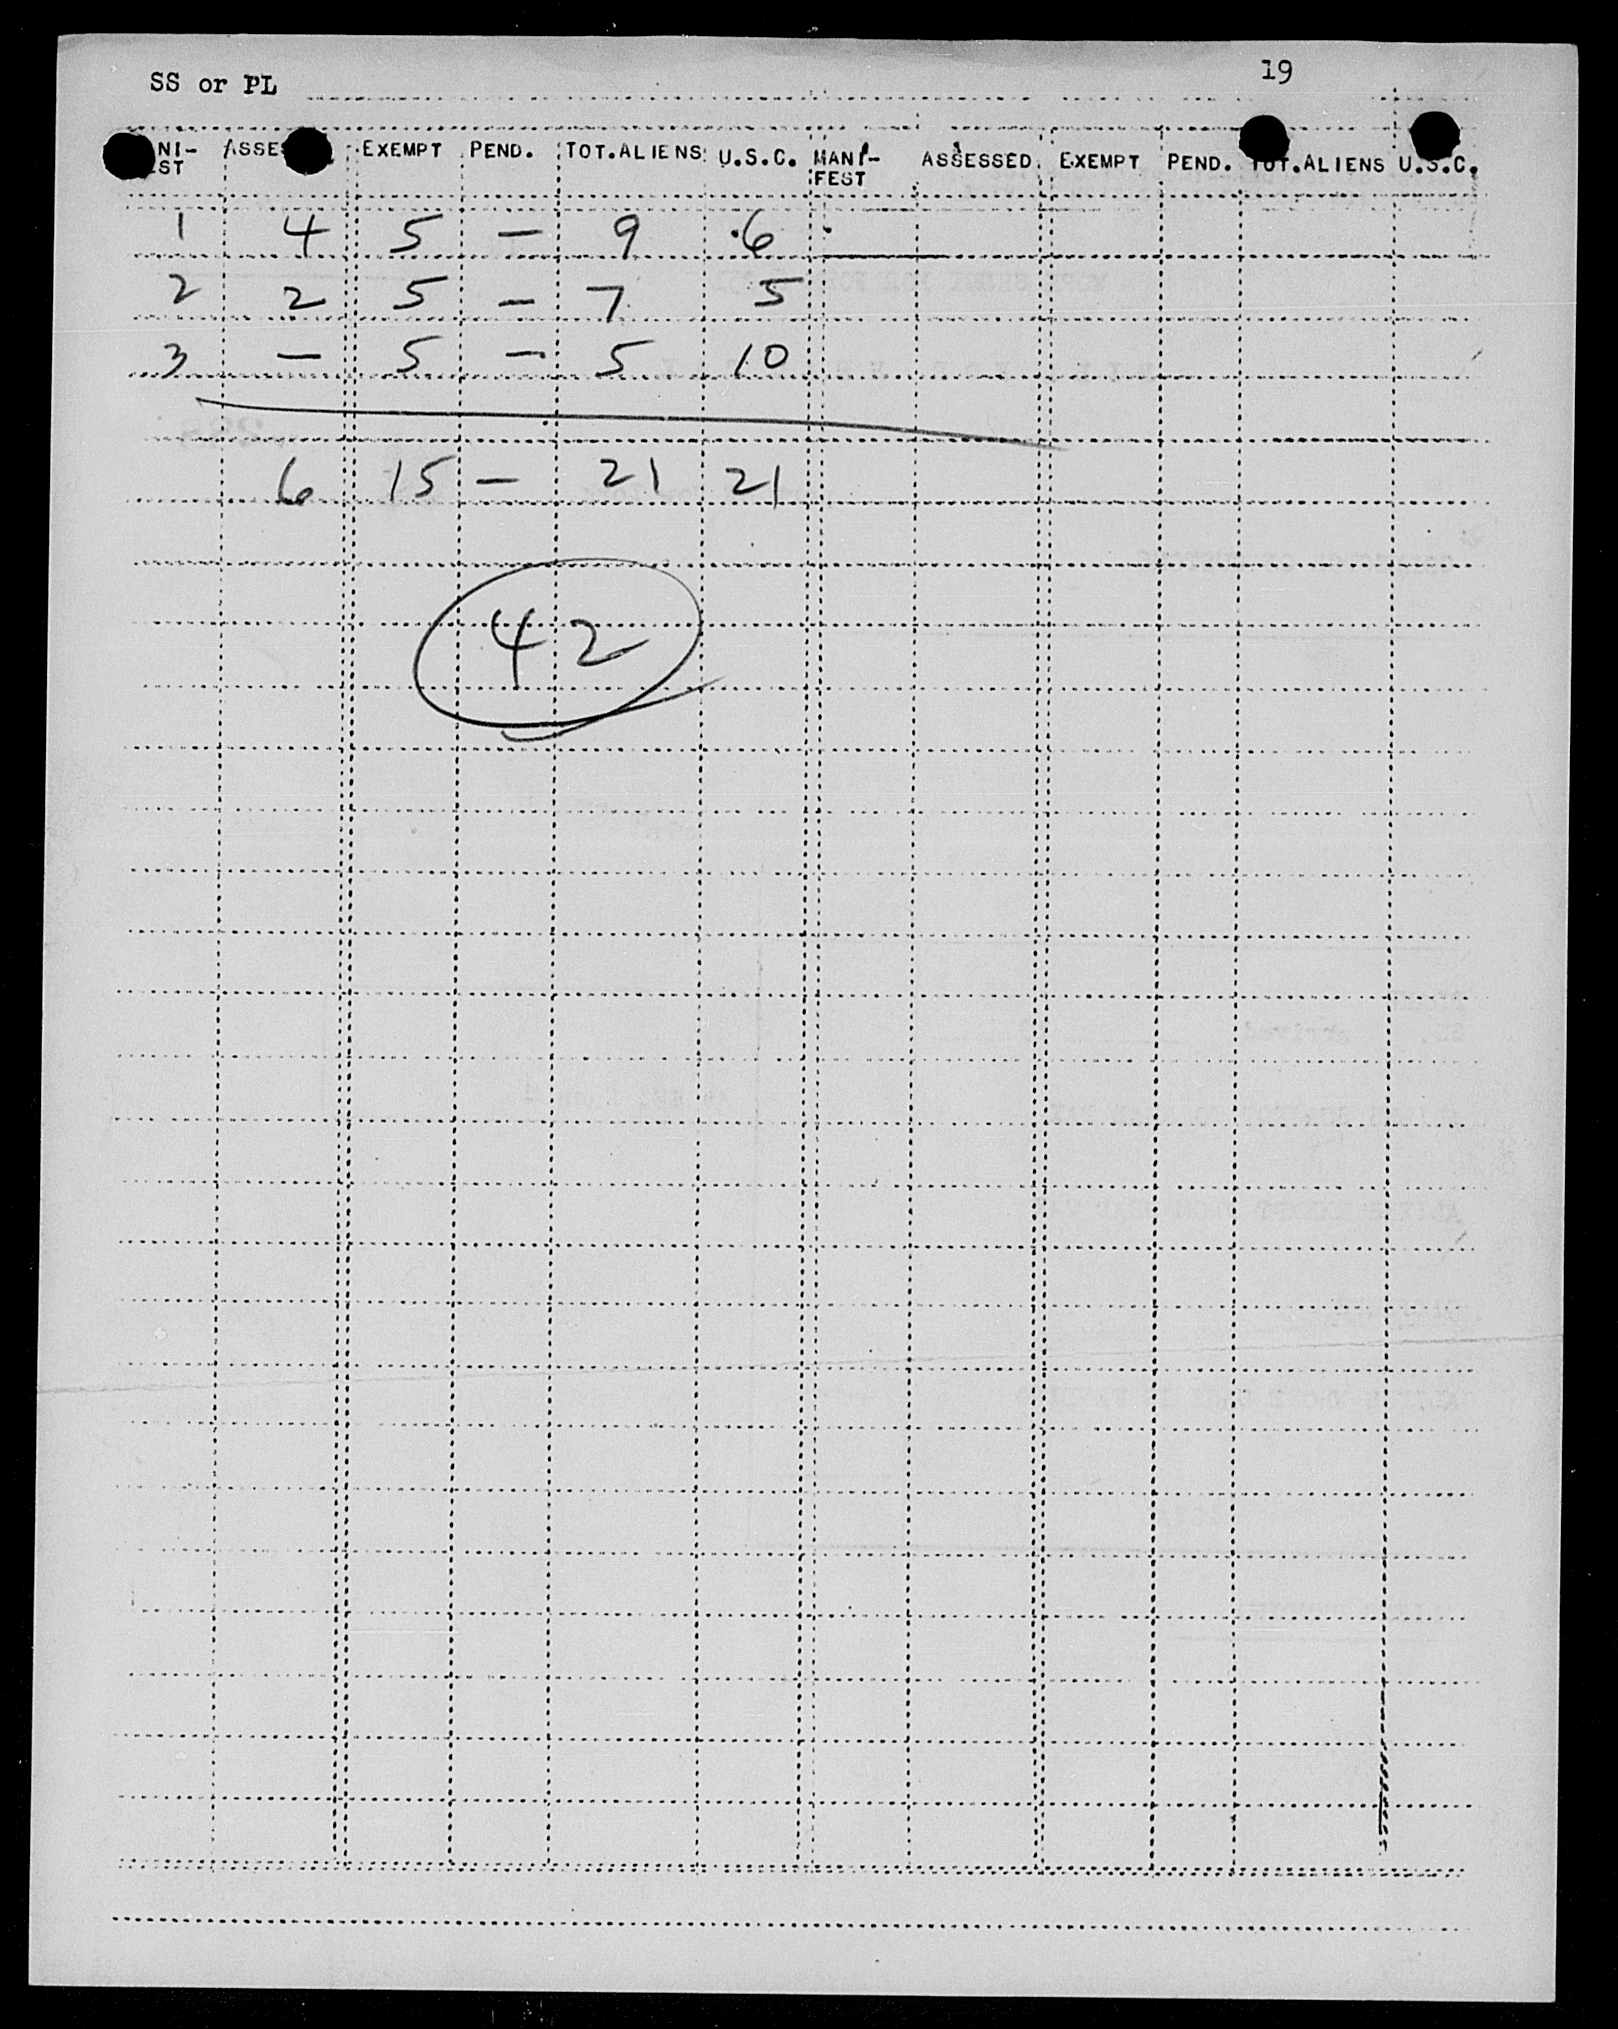 SS or PL 19
ASSE EXEMPT PEND. TOT.ALIENS U.S.C. MANI- ASSESSED EXEMPT PEND. TOT.ALIENS U.S.C.
FEST
1 4 5 — 9 6
2 2 5 — 7 5
3 — 5 — 5 10
6 15 — 21 21
42